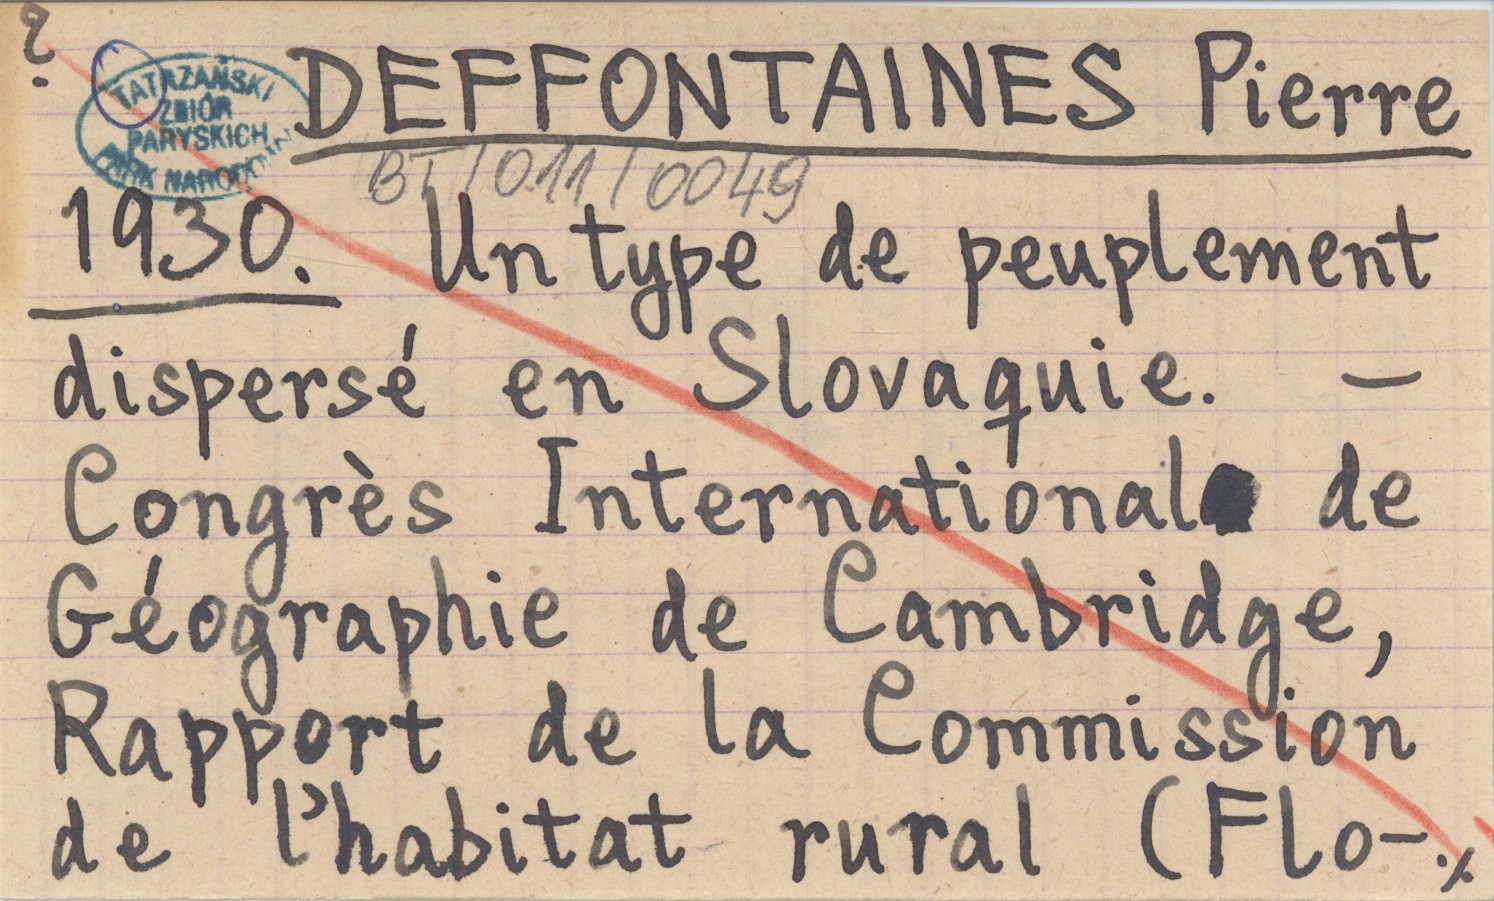 ?
TATRZAŃSKI
ZBIÓR
PARYSKICH
PARK NARODOWY
DEFFONTAINES Pierre
BT/011/0049
1930. Un type de peuplement
dispersé en Slovaquie. —
Congrès International de
Géographie de Cambridge,
Rapport de la Commission
de l'habitat rural (Flo-./.